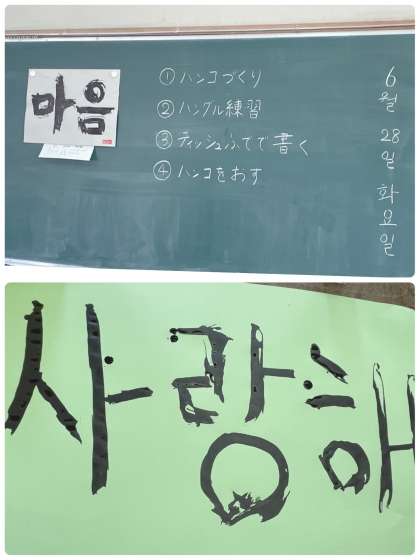 마음
① ハンコづくり
② ハングル練習
③ ティッシュふでで書く
④ ハンコをおす
6월 28일 화요일
사랑해